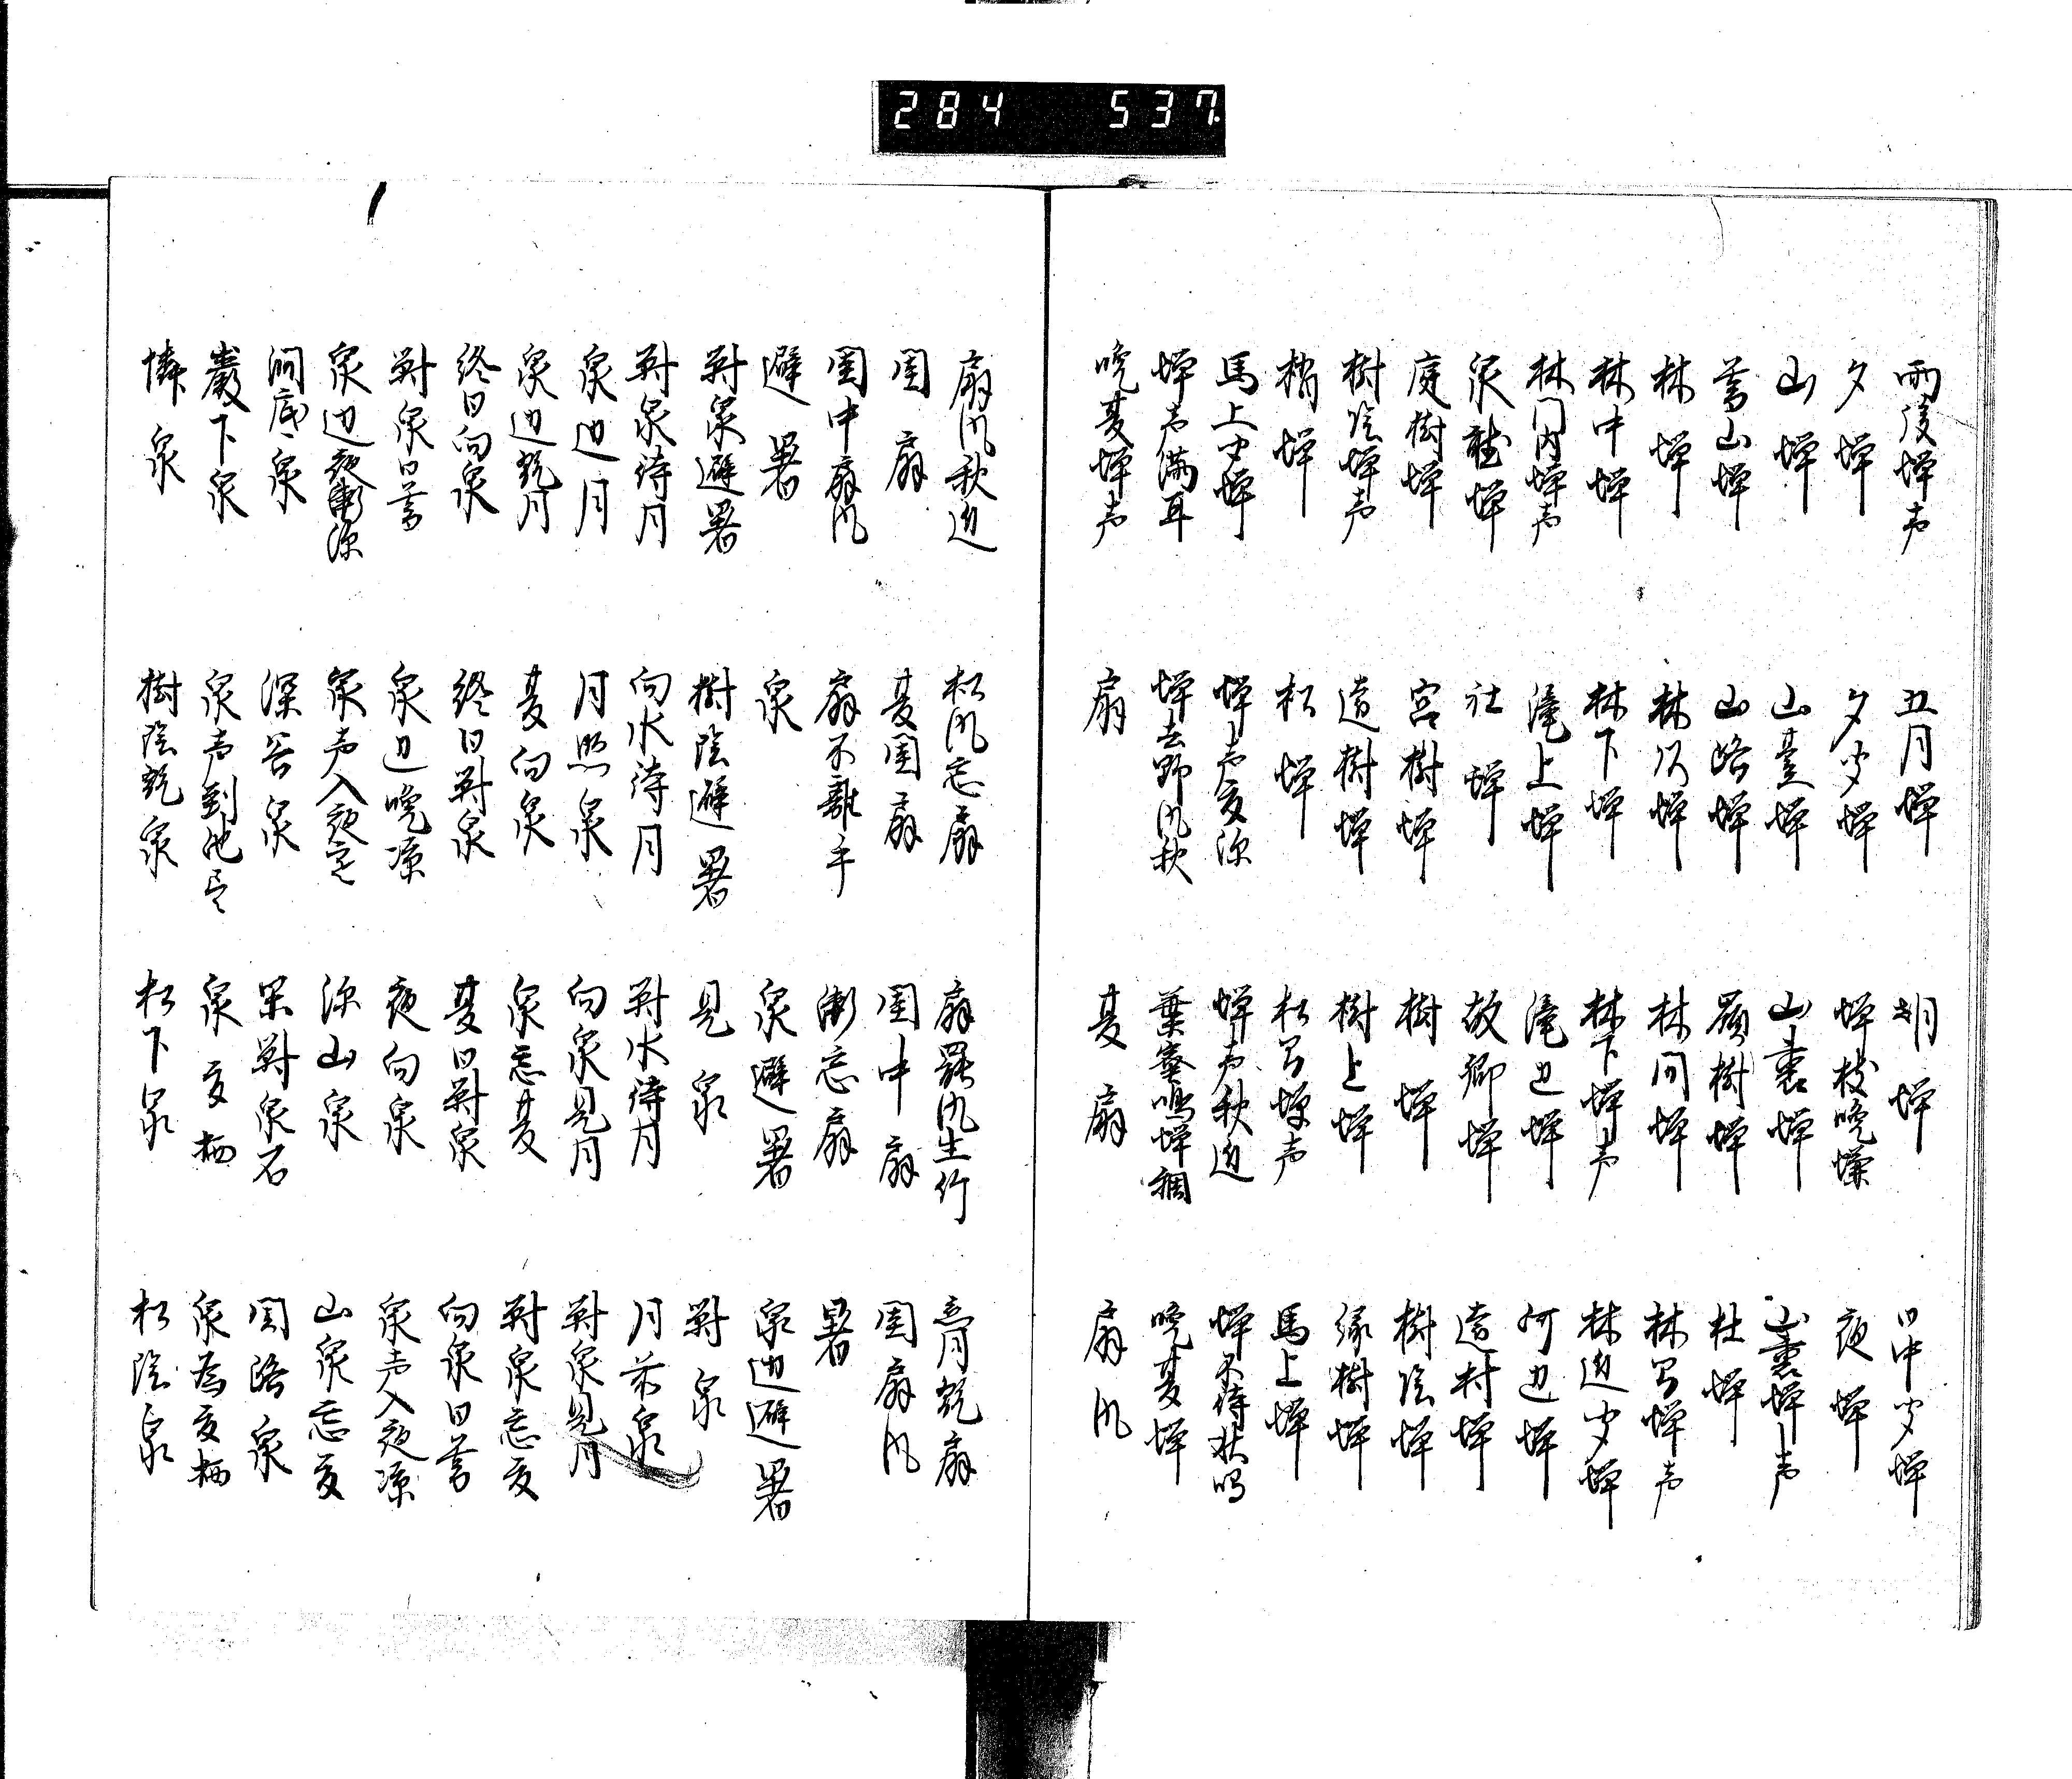 284 537
雨後蝉声 五月蝉 朝蝉 日中聞蝉
夕蝉 夕聞蝉 蝉枝晩 夜蝉
山蝉 山夏蝉 山裏蝉 山裏蝉声
暮山蝉 山路蝉 嶺樹蝉 杜蝉
林蝉 林頭蝉 林間蝉 林間蝉声
林中蝉 林下蝉 林下蝉声 林辺聞蝉
林門内蝉声 滝上蝉 滝辺蝉 河辺蝉
泉聴蝉 社蝉 故郷蝉 遠村蝉
庭樹蝉 宮樹蝉 樹蝉 樹陰蝉
樹陰蝉声 遠樹蝉 樹上蝉 緑樹蝉
梢蝉 松蝉 松間蝉声 馬上蝉
馬上聞蝉 蝉声夏深 蝉声秋近 蝉不待秋鳴
蝉声満耳 蝉去野風秋 葉密鳴蝉稠 晩夏蝉
晩夏蝉声 扇 夏扇 扇風
扇風秋近 松風忘扇 扇罷風生竹 翫扇
閨扇 夏閨扇 閨中扇 閨扇風
閨中扇風 扇不離手 漸忘扇 暑
避暑 泉 泉避暑 泉辺避暑
対泉避暑 樹陰避暑 見泉 対泉
対泉待月 向水待月 対水待月 月前泉
泉辺月 月照泉 向泉見月 対泉見月
泉辺翫月 夏向泉 泉忘夏 対泉忘夏
終日向泉 終日対泉 夏日対泉 向泉日暮
対泉日暮 泉辺晩涼 夜向泉 泉声入夜涼
泉辺夜漸深 泉声入夜寒 深山泉 山泉忘夏
澗底泉 深谷泉 対泉石 関路泉
巌下泉 泉声到池尽 泉夏栖 泉為夏栖
憐泉 樹陰翫泉 松下泉 松陰泉